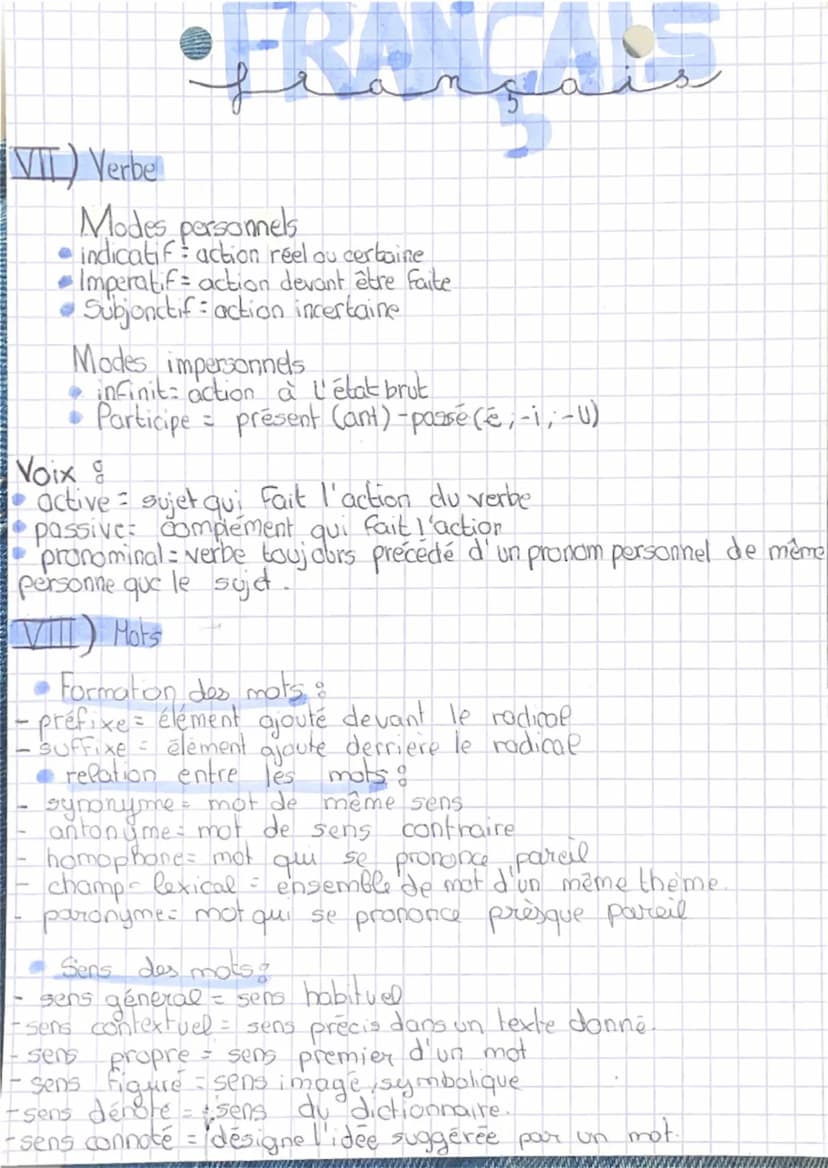 FRANÇAIS
français
VII) Verbe
Modes personnels
• indicatif = action réel ou certaine
• Imperatif = action devant être faite
• Subjonctif = action incertaine
Modes impersonnels
• infinit = action à l'état brut
• Participe = présent (ant) - passé (é, -i, -u)
Voix :
• active = sujet qui fait l'action du verbe
• passive = complément qui fait l'action
• pronominal = verbe toujours précédé d'un pronom personnel de même
personne que le sujet.
VIII) Mots
• Formation des mots :
- préfixe = élément ajouté devant le radical
- suffixe = élément ajouté derrière le radical
• relation entre les mots :
- synonyme = mot de même sens
- antonyme = mot de sens contraire
- homophone = mot qui se prononce pareil
- champ-lexical = ensemble de mot d'un même thème.
- paronyme = mot qui se prononce presque pareil
• Sens des mots :
- sens général = sens habituel
- sens contextuel = sens précis dans un texte donné.
- sens propre = sens premier d'un mot
- sens figuré = sens imagé, symbolique
- sens dénoté = sens du dictionnaire.
- sens connoté = désigne l'idée suggérée par un mot.